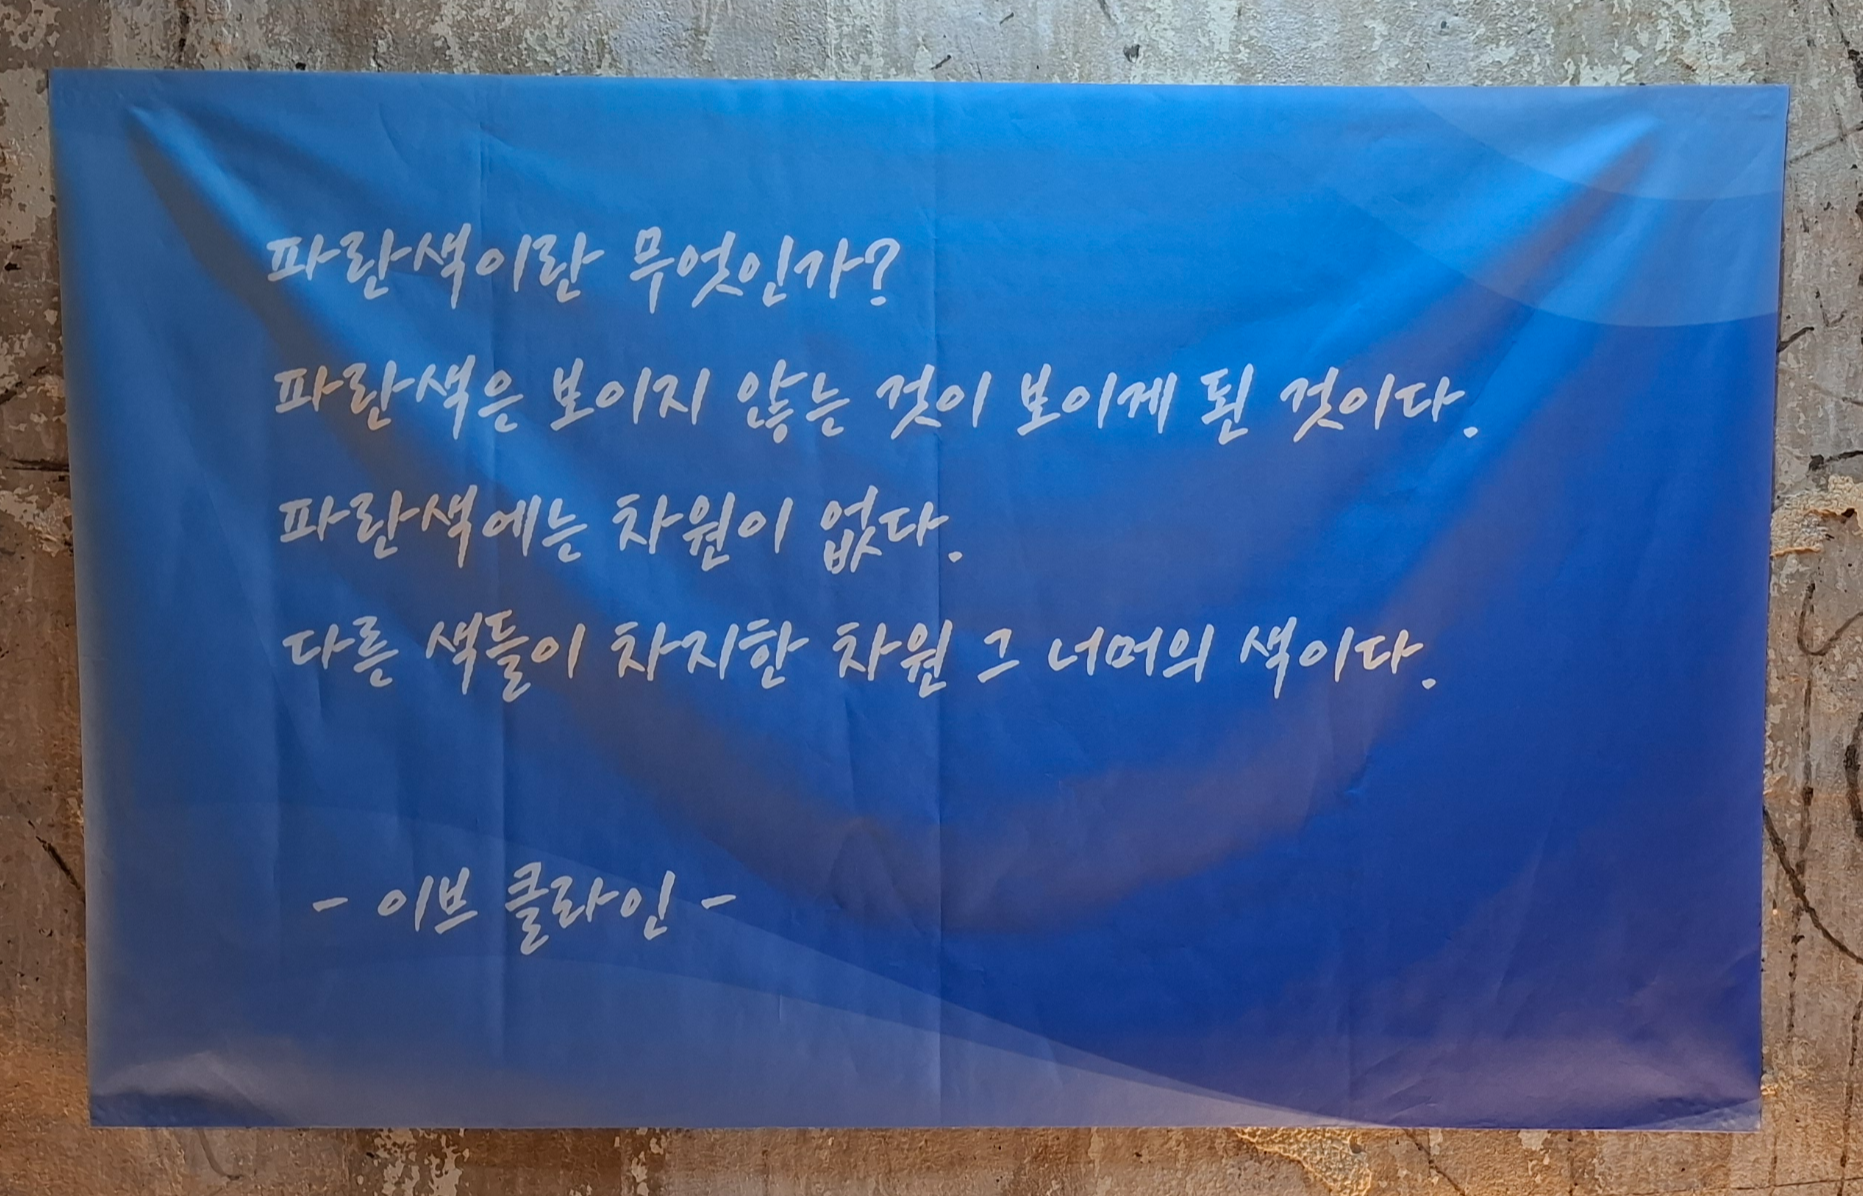 파란색이란 무엇인가?
파란색은 보이지 않는 것이 보이게 된 것이다.
파란색에는 차원이 없다.
다른 색들이 차지한 차원 그 너머의 색이다.
- 이브 클라인 -